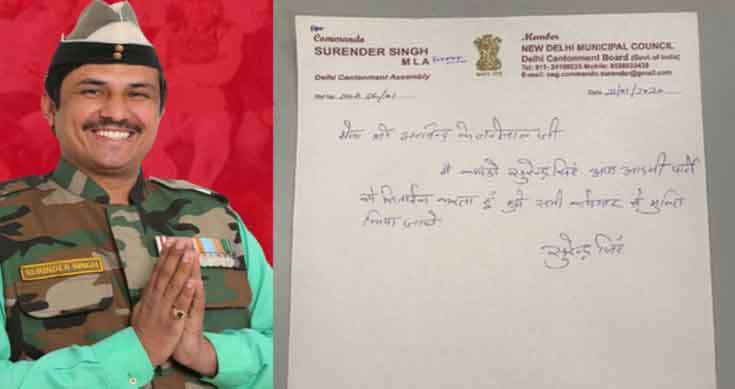 SURINDER SINGH
Commando
SURENDER SINGH
M L A
Delhi Cantonment Assembly
Member
NEW DELHI MUNICIPAL COUNCIL
Delhi Cantonment Board (Govt. of India)
Date 21/01/2020
सेवा श्री अरविन्द केजरीवाल जी
मै कमांडो सुरेन्द्र सिंह आम आदमी पार्टी
से करता हूं मुझे सभी से मुक्ति
किया जावे
सुरेन्द्र सिंह